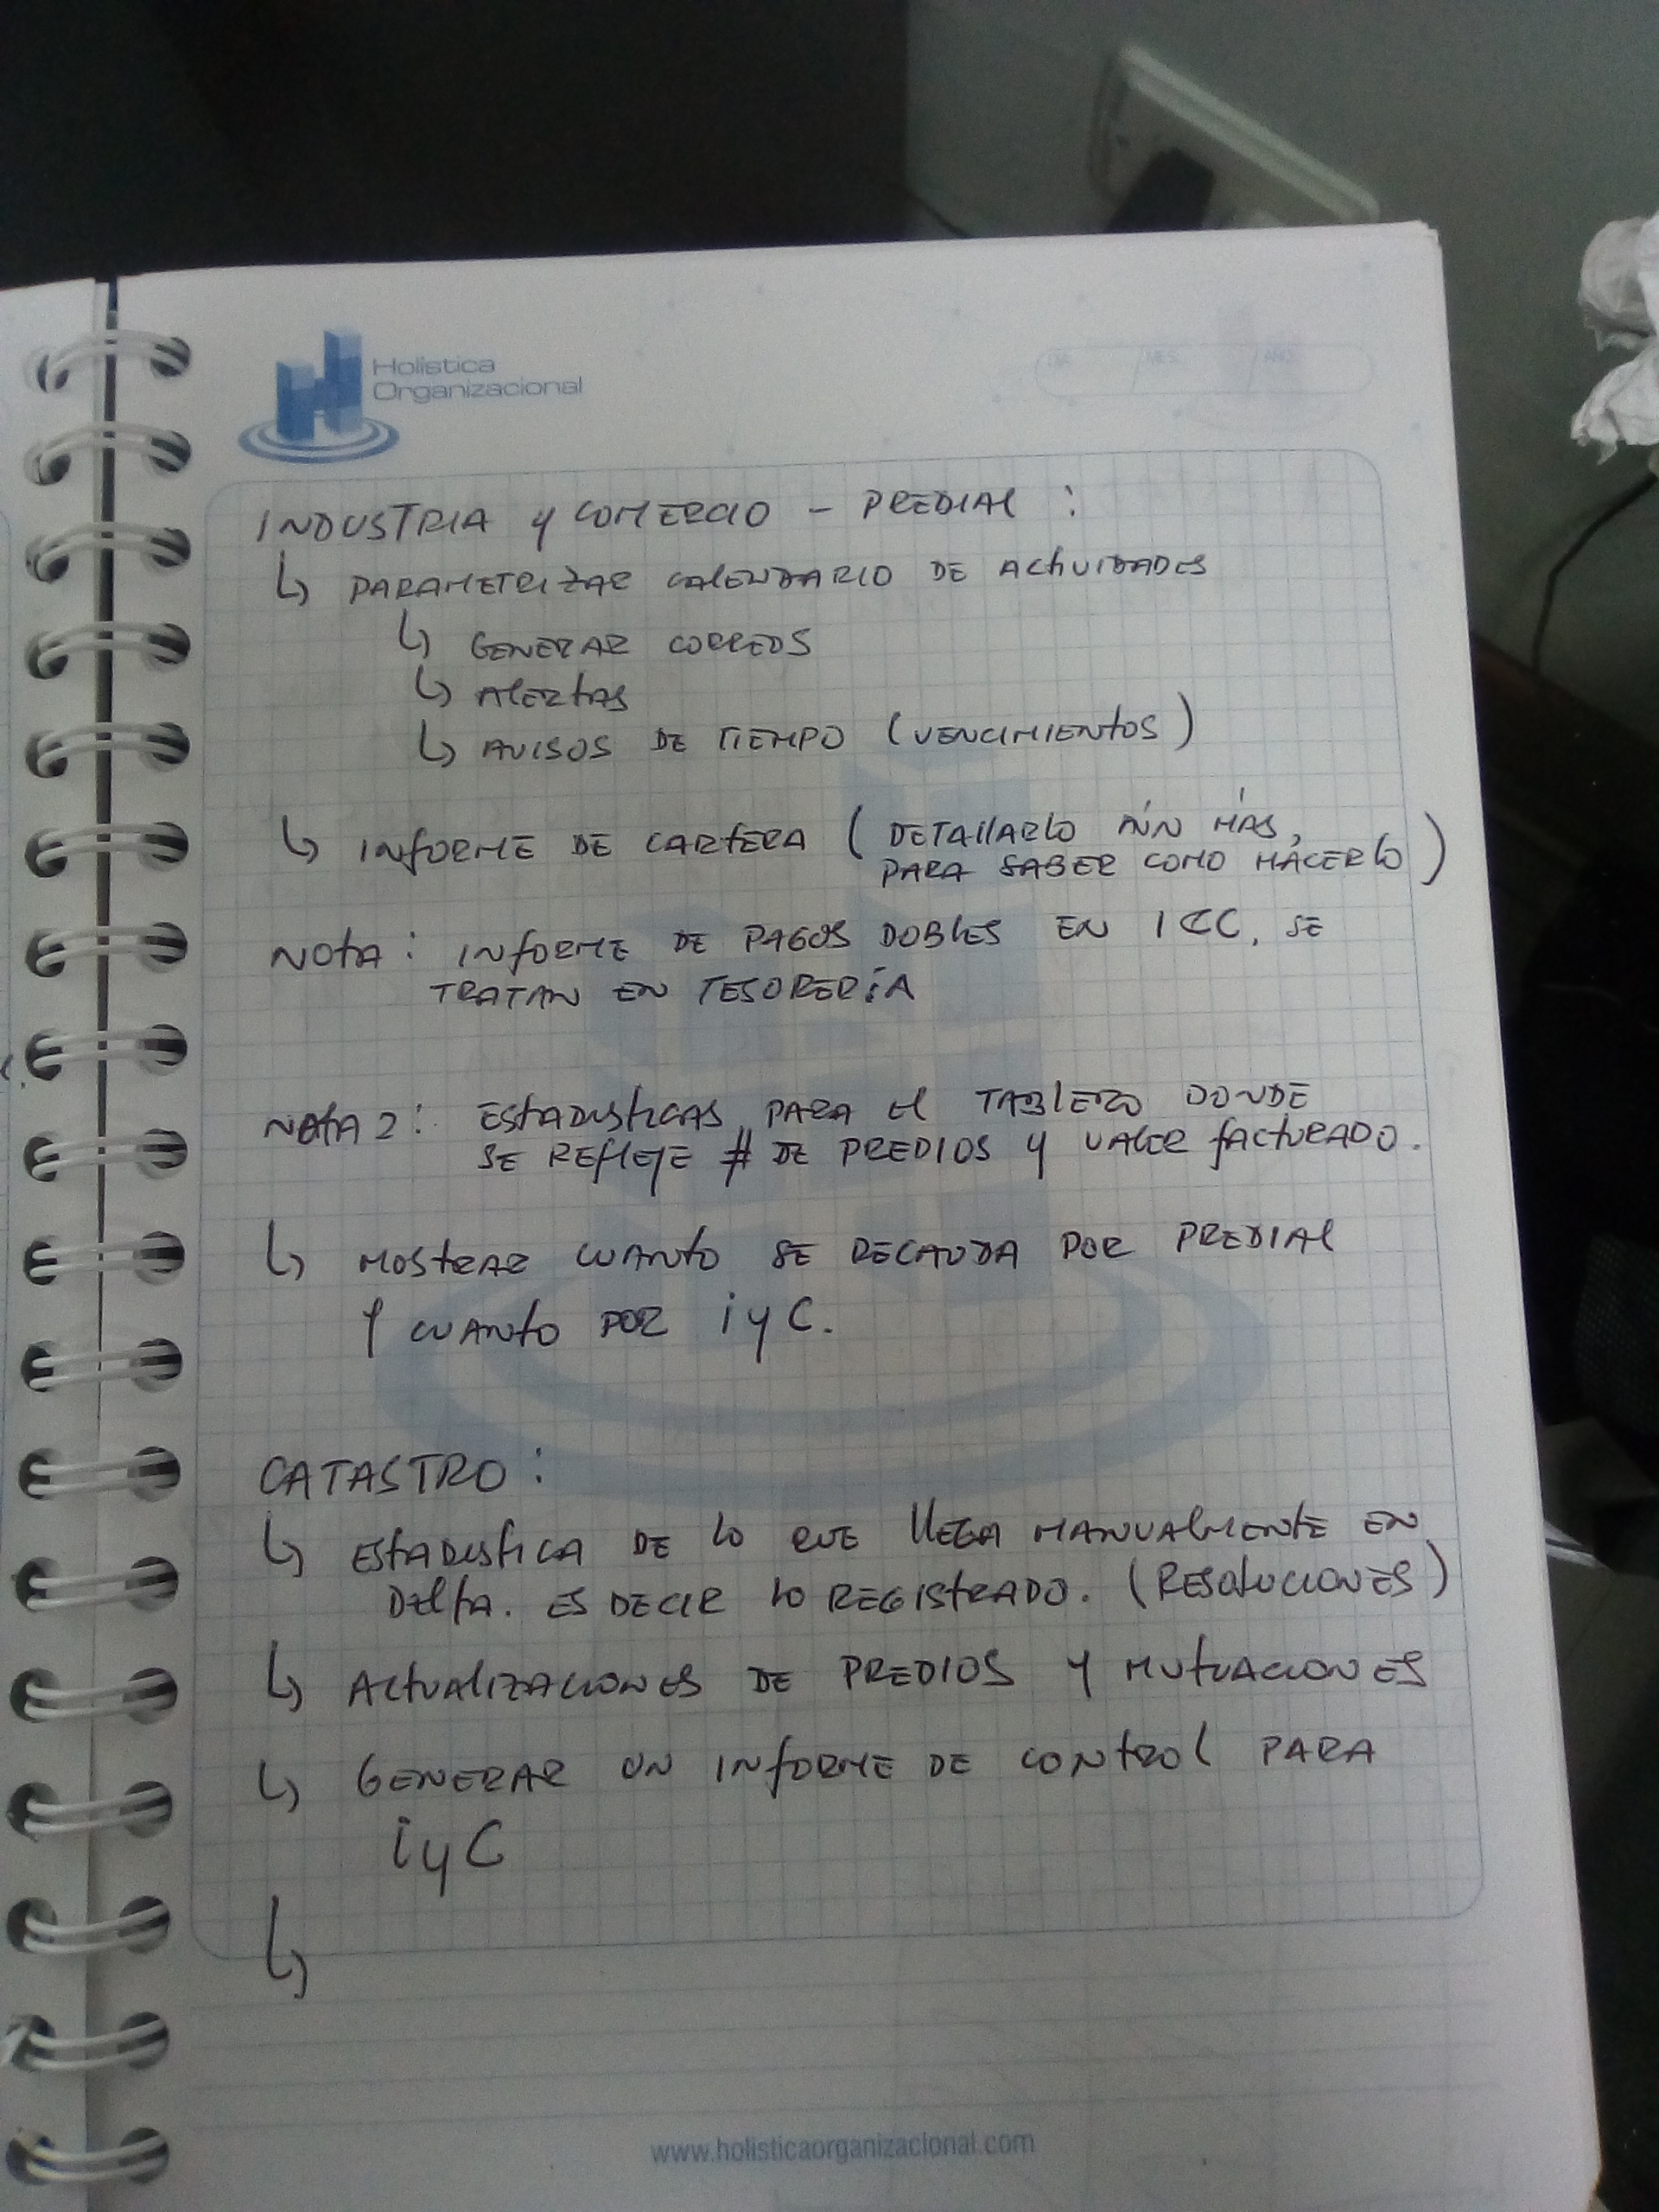 Holística
Organizacional
DIA MES AÑO
INDUSTRIA y COMERCIO - PREDIAL :
↳ PARAMETRIZAR CALENDARIO DE ACTIVIDADES
↳ GENERAR CORREOS
↳ ALERTAS
↳ AVISOS DE TIEMPO (VENCIMIENTOS)
↳ INFORME DE CARTERA ( DETALLARLO AÚN MÁS,
PARA SABER COMO HACERLO )
NOTA : INFORME DE PAGOS DOBLES EN ICC, SE
TRATAN EN TESORERíA
NOTA 2 : ESTADISTICAS PARA El TABLERO DONDE
SE REFLEJE # DE PREDIOS Y VALOR FACTURADO.
↳ MOSTRAR CUANTO SE RECAUDA POR PREDIAL
Y CUANTO POR i y C.
CATASTRO :
↳ ESTADISTICA DE LO QUE LLEGA MANUALMENTE EN
DELTA. ES DECIR LO REGISTRADO. (RESOLUCIONES)
↳ ACTUALIZACIONES DE PREDIOS Y MUTUACIONES
↳ GENERAR UN INFORME DE CONTROL PARA
i y C
↳
www.holisticaorganizacional.com